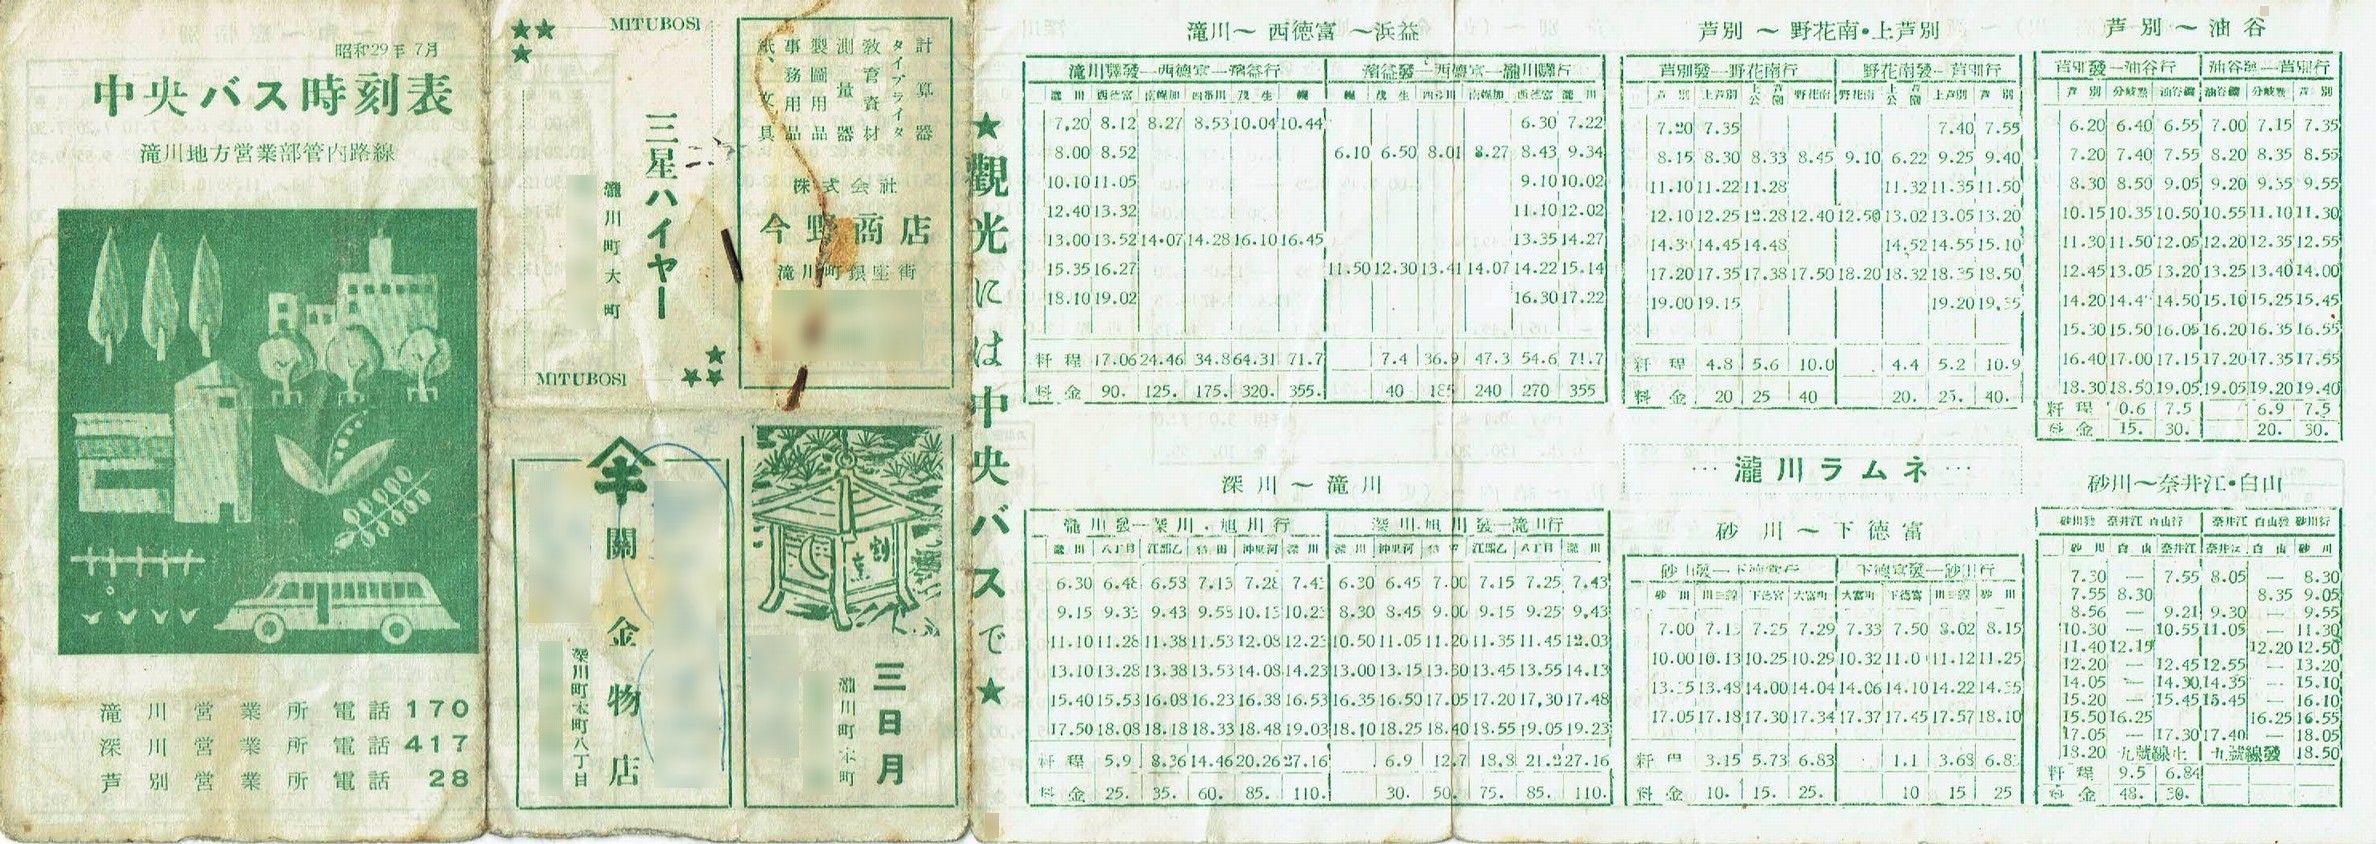 昭和29年 7月
中央バス時刻表
滝川地方営業部管内路線
滝川営業所電話170
深川営業所電話417
芦別営業所電話 28
MITUBOSI
三星ハイヤー
瀧川町大町
MITUBOSI
計算器
タイプライタ
教育資材
測量器
製圖用品
事務用品
紙、文具
株式会社
今野商店
滝川町銀座街
關金物店
深川町本町八丁目
割烹
三日月
瀧川町本町
★観光には中央バスで★
滝川～西徳富～浜益
滝川驛發―西徳富―濱益行 濱益發―西徳富―瀧川驛行
瀧川 西徳富 南幌加 四番川 茂生 幌 幌 茂生 四番川 南幌加 西徳富 瀧川
7.20 8.12 8.27 8.53 10.04 10.44 6.30 7.22
8.00 8.52 6.10 6.50 8.01 8.27 8.43 9.34
10.10 11.05 9.10 10.02
12.40 13.32 11.10 12.02
13.00 13.52 14.07 14.28 16.10 16.45 13.35 14.27
15.35 16.27 11.50 12.30 13.41 14.07 14.22 15.14
18.10 19.02 16.30 17.22
粁程 17.06 24.46 34.8 64.31 71.7 7.4 36.9 47.3 54.6 71.7
料金 90. 125. 175. 320. 355. 40 185 240 270 355
深川～滝川
瀧川發―深川．旭川行 深川．旭川發―滝川行
瀧川 八丁目 江部乙 稲田 沖里河 深川 深川 沖里河 稲田 江部乙 八丁目 瀧川
6.30 6.48 6.58 7.13 7.28 7.43 6.30 6.45 7.00 7.15 7.25 7.43
9.15 9.33 9.43 9.58 10.13 10.23 8.30 8.45 9.00 9.15 9.25 9.43
11.10 11.28 11.38 11.53 12.08 12.23 10.50 11.05 11.20 11.35 11.45 12.03
13.10 13.28 13.38 13.53 14.08 14.23 13.00 13.15 13.30 13.45 13.55 14.13
15.40 15.53 16.08 16.23 16.38 16.53 16.35 16.50 17.05 17.20 17.30 17.48
17.50 18.08 18.18 18.33 18.48 19.03 18.10 18.25 18.40 18.55 19.05 19.23
粁程 5.9 8.36 14.46 20.26 27.16 6.9 12.7 18.8 21.2 27.16
料金 25. 35. 60. 85. 110. 30. 50. 75. 85. 110.
芦別～野花南・上芦別
芦別發―野花南行 野花南發―芦別行
芦別 上芦別 上公園 野花南 野花南 上公園 上芦別 芦別
7.20 7.35 7.40 7.55
8.15 8.30 8.33 8.45 9.10 6.22 9.25 9.40
11.10 11.22 11.28 11.32 11.35 11.50
12.10 12.25 12.28 12.40 12.50 13.02 13.05 13.20
14.30 14.45 14.48 14.52 14.55 15.10
17.20 17.35 17.38 17.50 18.20 18.32 18.35 18.50
19.00 19.15 19.20 19.35
粁程 4.8 5.6 10.0 4.4 5.2 10.9
料金 20 25 40 20. 25. 40.
…瀧川ラムネ…
砂川～下徳富
砂川發―下徳富行 下徳富發―砂川行
砂川 下徳富 大富町 大富町 下徳富 砂川
7.00 7.13 7.25 7.29 7.33 7.50 8.02 8.15
10.00 10.13 10.25 10.29 10.32 11.0 11.12 11.25
13.35 13.48 14.00 14.04 14.06 14.10 14.22 14.35
17.05 17.18 17.30 17.34 17.37 17.45 17.57 18.10
粁程 3.15 5.73 6.83 1.1 3.68 6.83
料金 10. 15. 25. 10 15 25
芦別～油谷
芦別發―油谷行 油谷發―芦別行
芦別 分岐點 油谷礦 油谷礦 分岐點 芦別
6.20 6.40 6.55 7.00 7.15 7.35
7.20 7.40 7.55 8.20 8.35 8.55
8.30 8.50 9.05 9.20 9.35 9.55
10.15 10.35 10.50 10.55 11.10 11.30
11.30 11.50 12.05 12.20 12.35 12.55
12.45 13.05 13.20 13.25 13.40 14.00
14.20 14.4 14.50 15.10 15.25 15.45
15.30 15.50 16.05 16.20 16.35 16.55
16.40 17.00 17.15 17.20 17.35 17.55
18.30 18.50 19.05 19.05 19.20 19.40
粁程 0.6 7.5 6.9 7.5
料金 15. 30. 20. 30.
砂川～奈井江・白山
砂川發 奈井江 白山行 奈井江 白山發 砂川行
砂川 白山 奈井江 奈井江 白山 砂川
7.30 ― 7.55 8.05 ― 8.30
7.55 8.30 8.35 9.05
8.56 ― 9.21 9.30 ― 9.55
10.30 ― 10.55 11.05 ― 11.30
11.40 12.15 12.20 12.50
12.20 ― 12.45 12.55 ― 13.20
14.05 ― 14.30 14.35 ― 15.10
15.20 ― 15.45 15.45 ― 16.10
15.50 16.25 16.25 16.55
17.05 ― 17.30 17.40 ― 18.05
18.20 九號線止 九號線發 18.50
粁程 9.5 6.84
料金 48. 30.